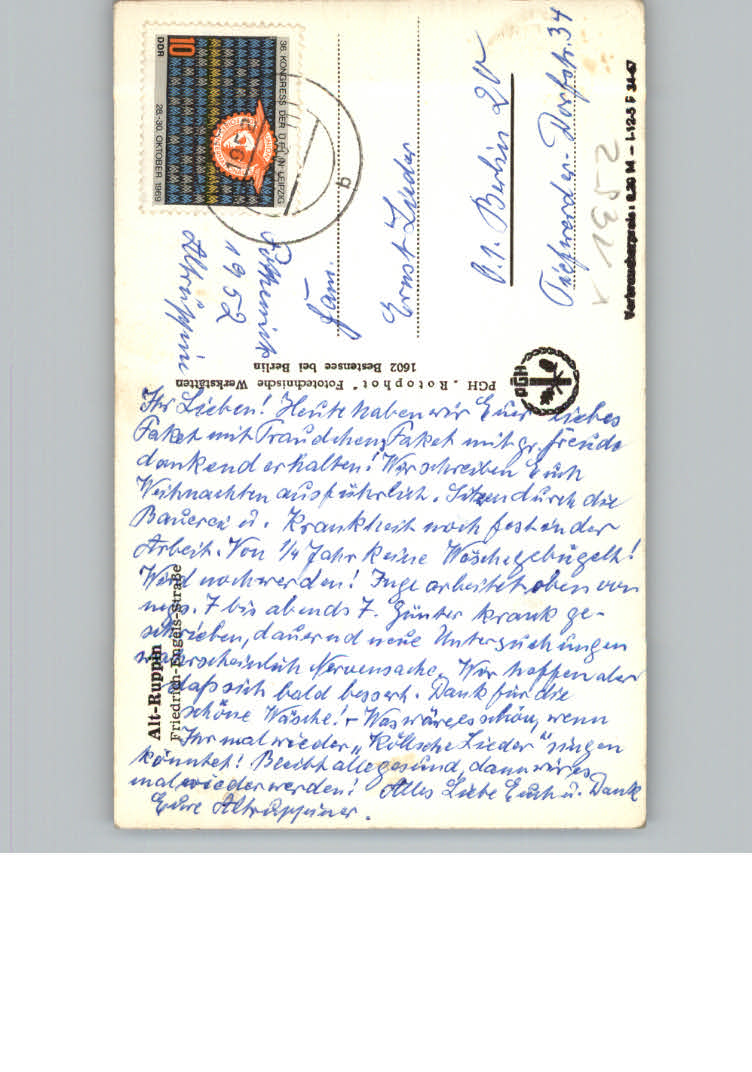 Ihr Lieben! Heute haben wir Euer liebes
Paket mit Traudchens Paket mit gr. Freude
dankend erhalten! Wir schreiben Euch
Weihnachten ausführlich. Sitzen durch die
Bauerei u. Krankheit noch fest in der
Arbeit. Von 1/4 Jahr keine Wäsche gebügelt!
Wird noch werden! Inge arbeitet oben von
7 bis abends 7. Günter krank ge-
schrieben, dauernd neue Untersuchungen
wahrscheinlich Nervensache. Wir hoffen aber
daß sich bald bessert. Dank für die
schöne Wäsche! - Was wäre es schön, wenn
Ihr mal wieder „Köllsche Lieder" singen
könntet! Bleibt alle gesund, dann wird es
mal wieder werden! Alles Liebe Euch u. Dank
Eure Altruppiner.
Alt-Ruppin
Friedrich-Engels-Straße
PGH „Rotophot" Fototechnische Werkstätten
1602 Bestensee bei Berlin
PGH
36. KONGRESS DER FIP IN LEIPZIG
28.-30. OKTOBER 1969
10
DDR
1952
Altruppin
Fam.
Ernst
1.1. Berlin 20
Tiefwerder-Dorfstr. 34
2531
Verbraucherpreis: 0,20 M – I-12-5 F 34-67